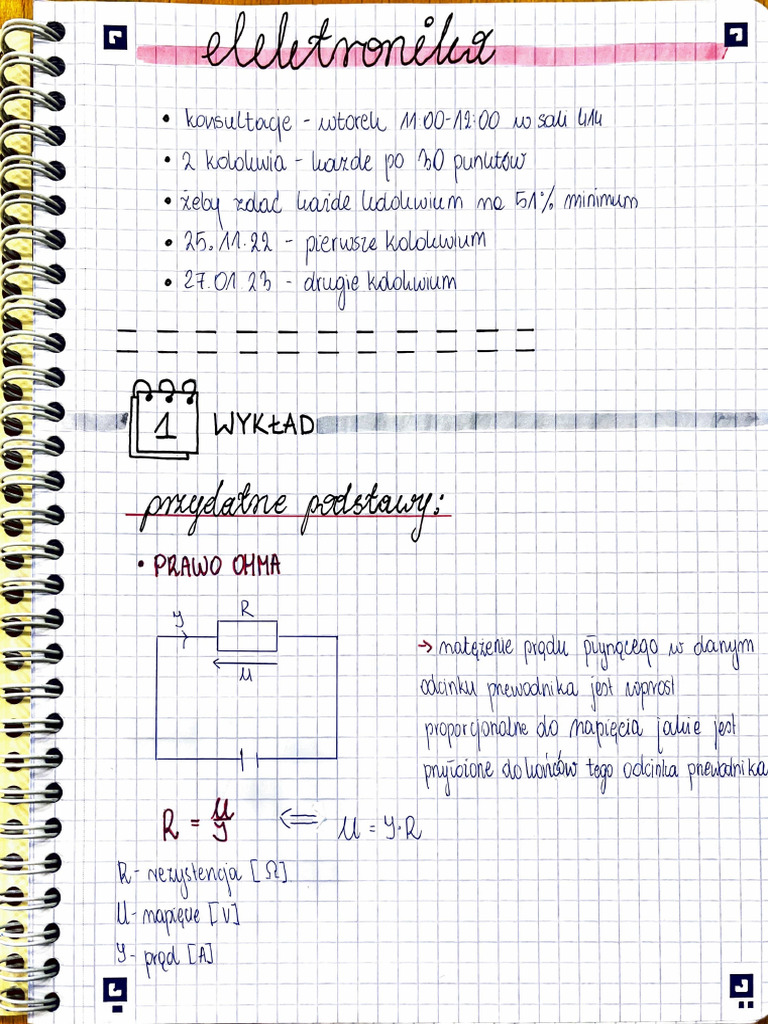 elektronika
• konsultacje - wtorek 11:00-12:00 w sali 414
• 2 kolokwia - każde po 30 punktów
• żeby zdać każde kolokwium na 51% minimum
• 25.11.22 - pierwsze kolokwium
• 27.01.23 - drugie kolokwium
1 WYKŁAD
przydatne podstawy:
• PRAWO OHMA
I
R
U
→ natężenie prądu płynącego w danym
odcinku przewodnika jest wprost
proporcjonalne do napięcia jakie jest
przyłożone do końców tego odcinka przewodnika
R = U/I ⇐ U = I·R
R - rezystencja [Ω]
U - napięcie [V]
I - prąd [A]